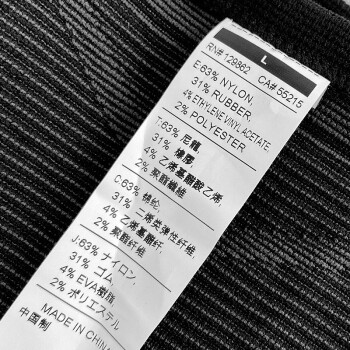 L
RN# 129862 CA# 55215
E:63% NYLON,
31% RUBBER,
4% ETHYLENE VINYL ACETATE,
2% POLYESTER
T:63% 尼龍,
31% 橡膠,
4% 乙烯基醋酸乙烯,
2% 聚酯纖維
C:63% 锦纶,
31% 二烯类弹性纤维,
4% 乙烯基酯纤,
2% 聚酯纤维
J:63% ナイロン,
31% ゴム,
4% EVA樹脂
2% ポリエステル
MADE IN CHINA
中国制